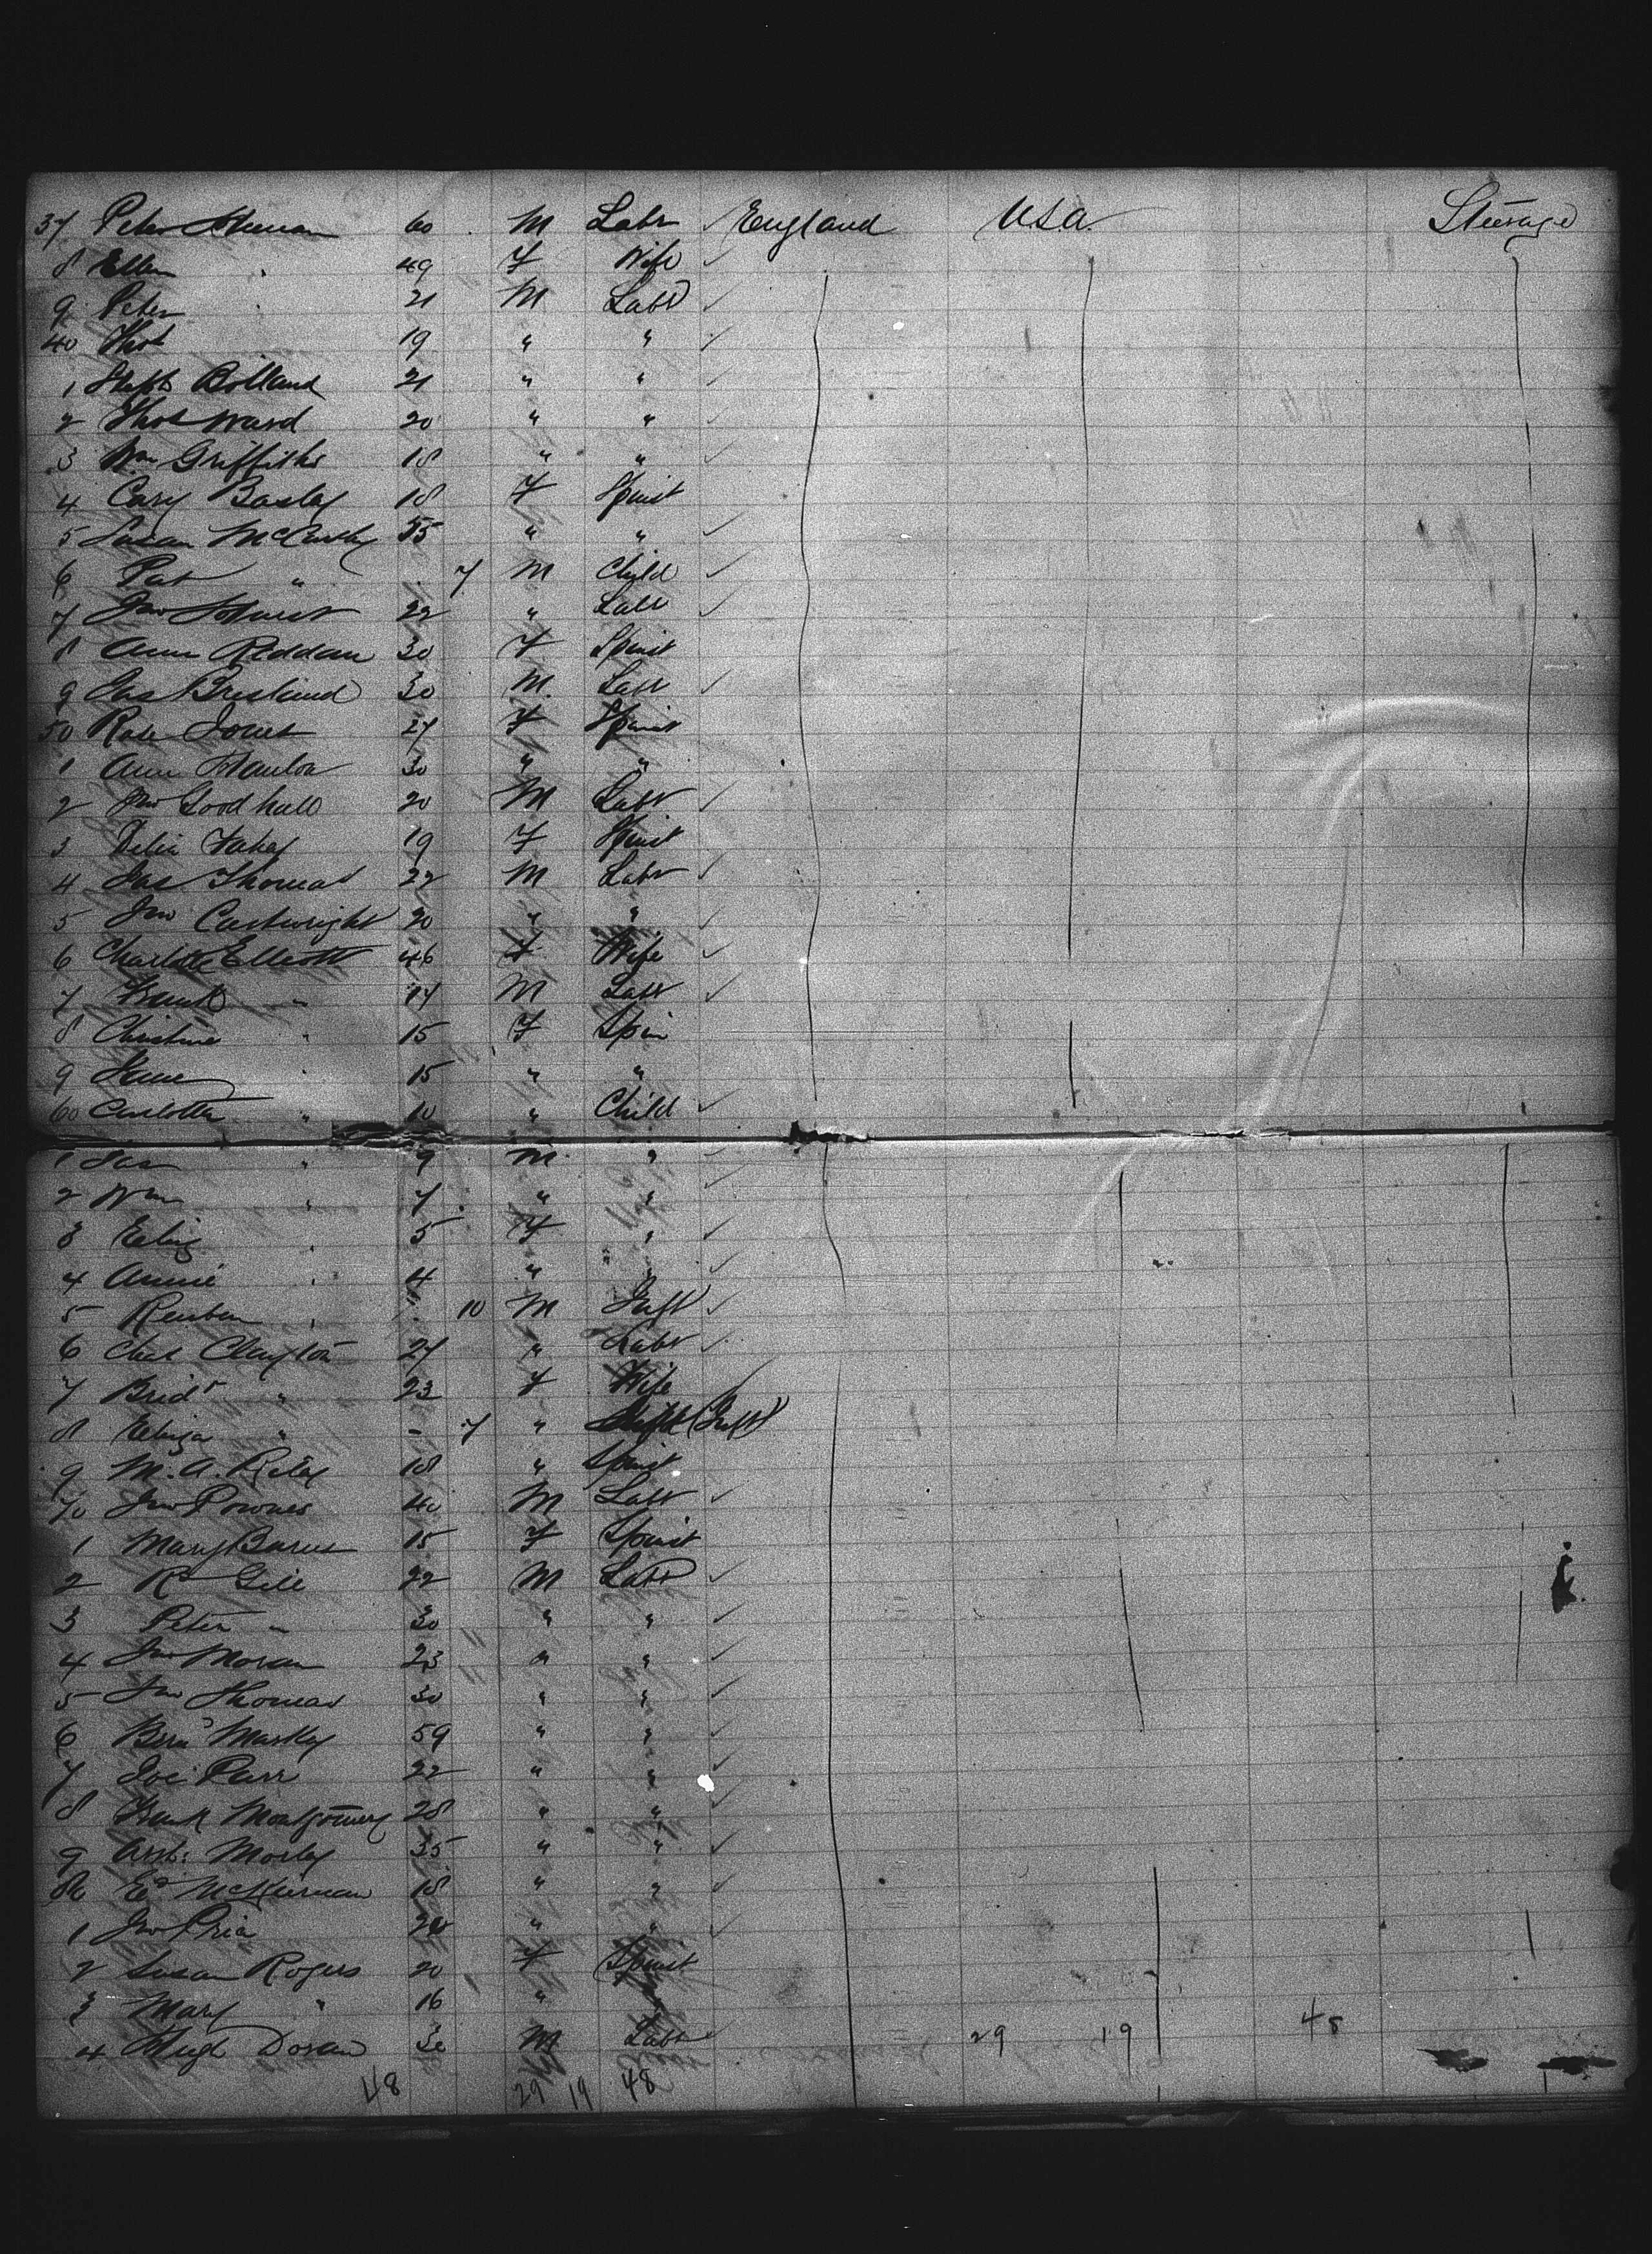 37 Peter 60 M Labr England U.S.A. Steerage
8 Ellen 49 F Wife
9 Peter 21 M Labr
40 Thos 19 " "
1 Bolland 21 " "
2 Thos Ward 20 " "
3 Wm Griffiths 18 " "
4 Cary 18 F Spinst
5 Susan McCarthy 55 " "
6 Pat " 7 M Child
7 Jno 22 " Labr
8 Ann Reddan 30 F Spinst
9 Jas Bresland 30 M. Labr
50 Rose Jones 27 F Spinst
1 Ann Hanlon 30 " "
2 Jno Goodhall 20 M Labr
3 Delia Fahey 19 F Spinst
4 Jas Thomas 22 M Labr
5 Jno Cartwright 20 " "
6 Charlotte Elliott 46 F Wife
7 Frank " 17 M Labr
8 Christine " 15 F Spin
9 " 15 " "
60 Carlotta " 10 " Child
1 Jas " 9 M "
2 Wm " 7 " "
3 Eliz " 5 F "
4 Annie " 4 " "
5 Reuben " 10 M Inft
6 Chas Clayton 27 " Labr
7 Bridt " 23 F Wife
8 Eliza " - 7 " (Inft)
9 M. A. Riley 18 " Spinst
70 Jno Pownes 40 M Labr
1 Mary Burns 15 F Spinst
2 Rd Gill 22 M Labr
3 Peter " 30 " "
4 Jno Moran 23 " "
5 Jno Thomas 30 " "
6 59 " "
7 Joe Parr 22 " "
8 Frank Montgomery 28 " "
9 Morley 35 " "
80 Ed McKiernan 18 " "
1 Jno " "
2 Susan Rogers 20 F Spinst
3 Mary " 16 " "
4 Hugh Doran 30 M Labr 29 19 48
48 29 19 48